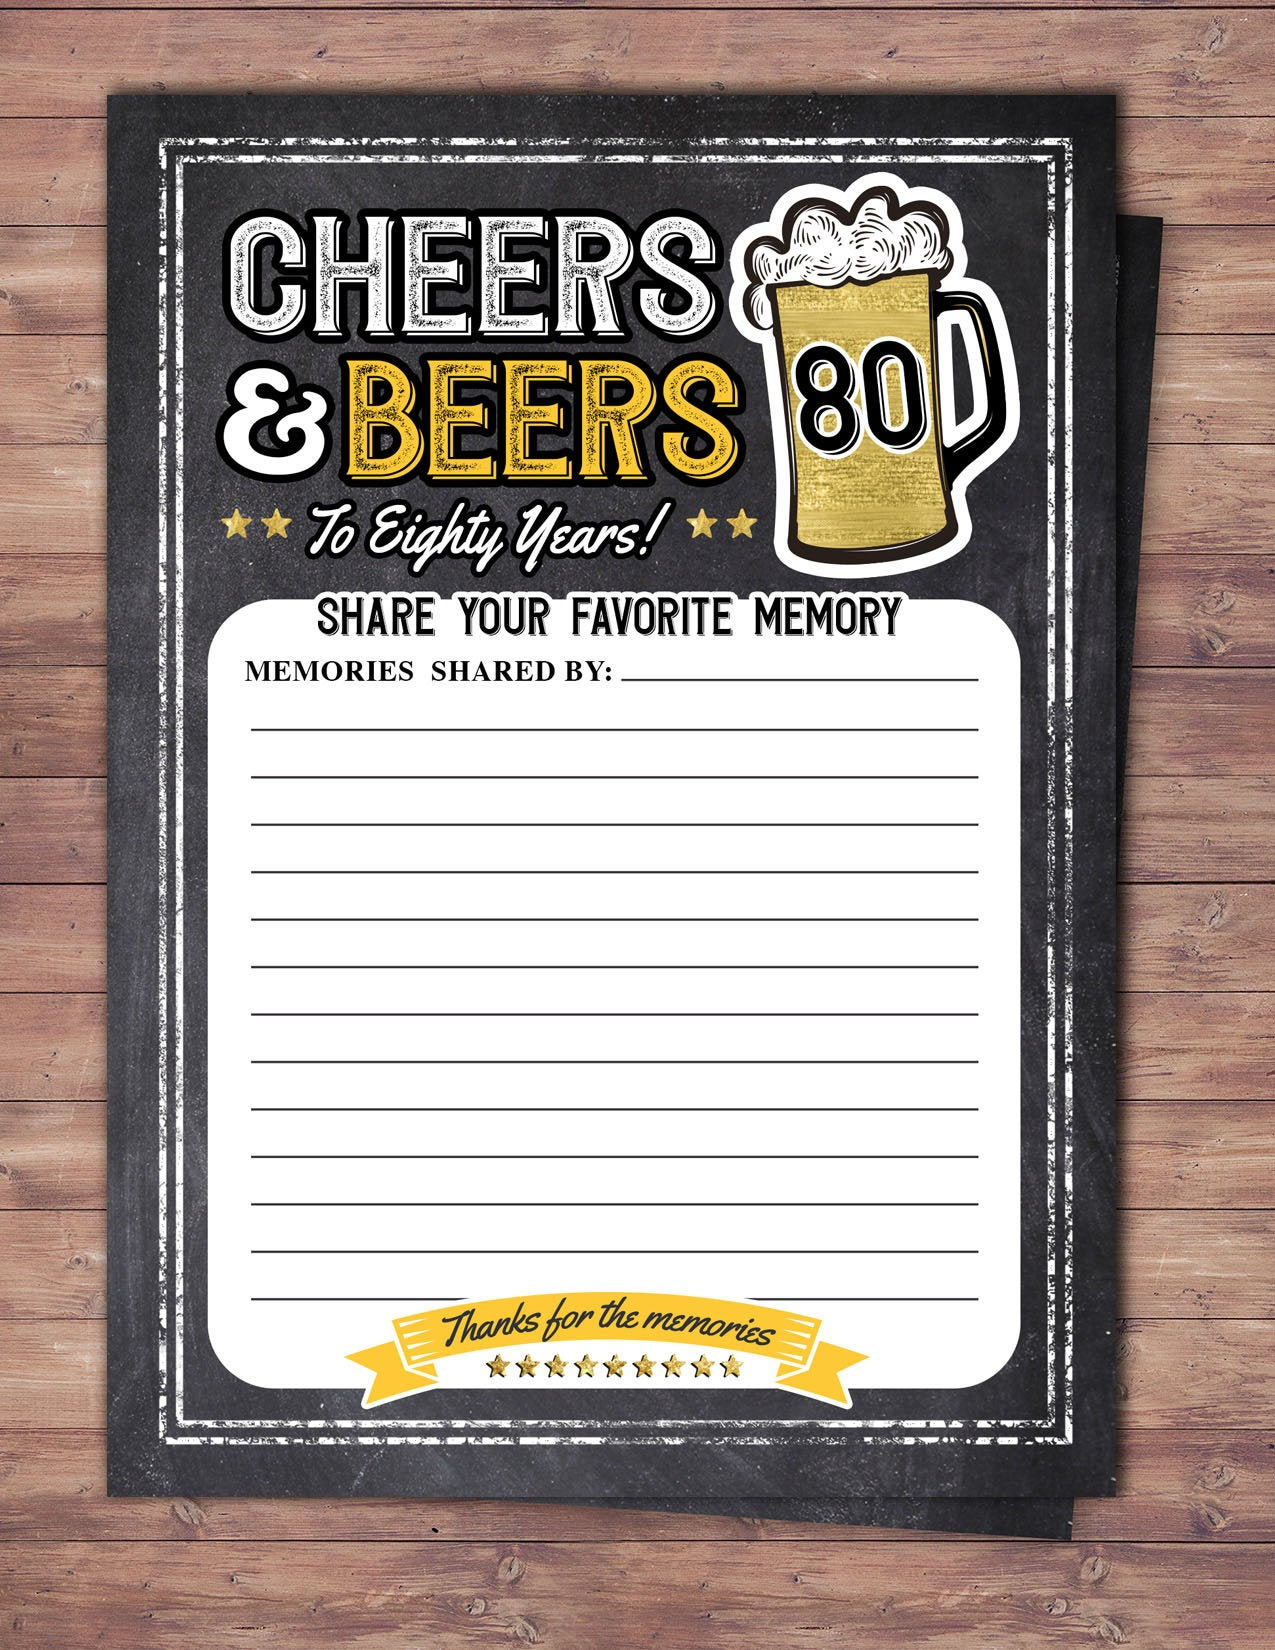 CHEERS
& BEERS
80
To Eighty Years!
SHARE YOUR FAVORITE MEMORY
MEMORIES SHARED BY:
Thanks for the memories